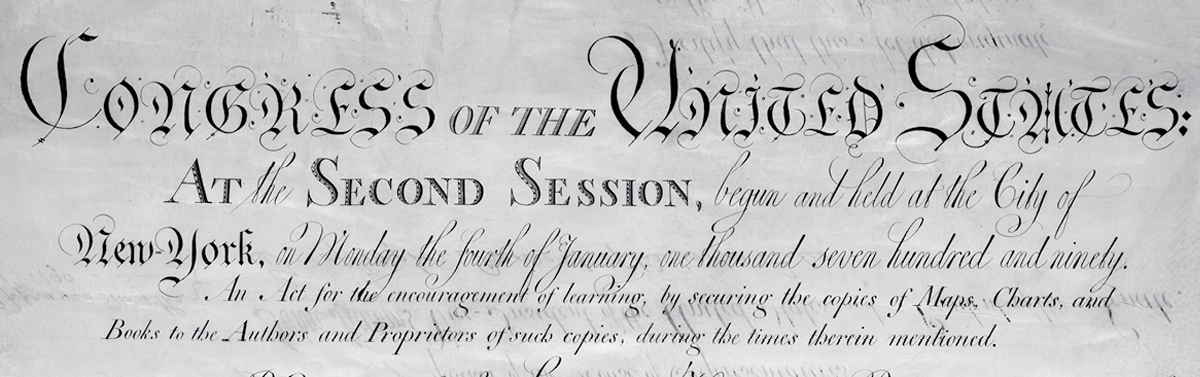 CONGRESS OF THE UNITED STATES:
AT the SECOND SESSION, begun and held at the City of
New-York, on Monday the fourth of January, one thousand seven hundred and ninety.
An Act for the encouragement of learning, by securing the copies of Maps, Charts, and
Books to the Authors and Proprietors of such copies, during the times therein mentioned.